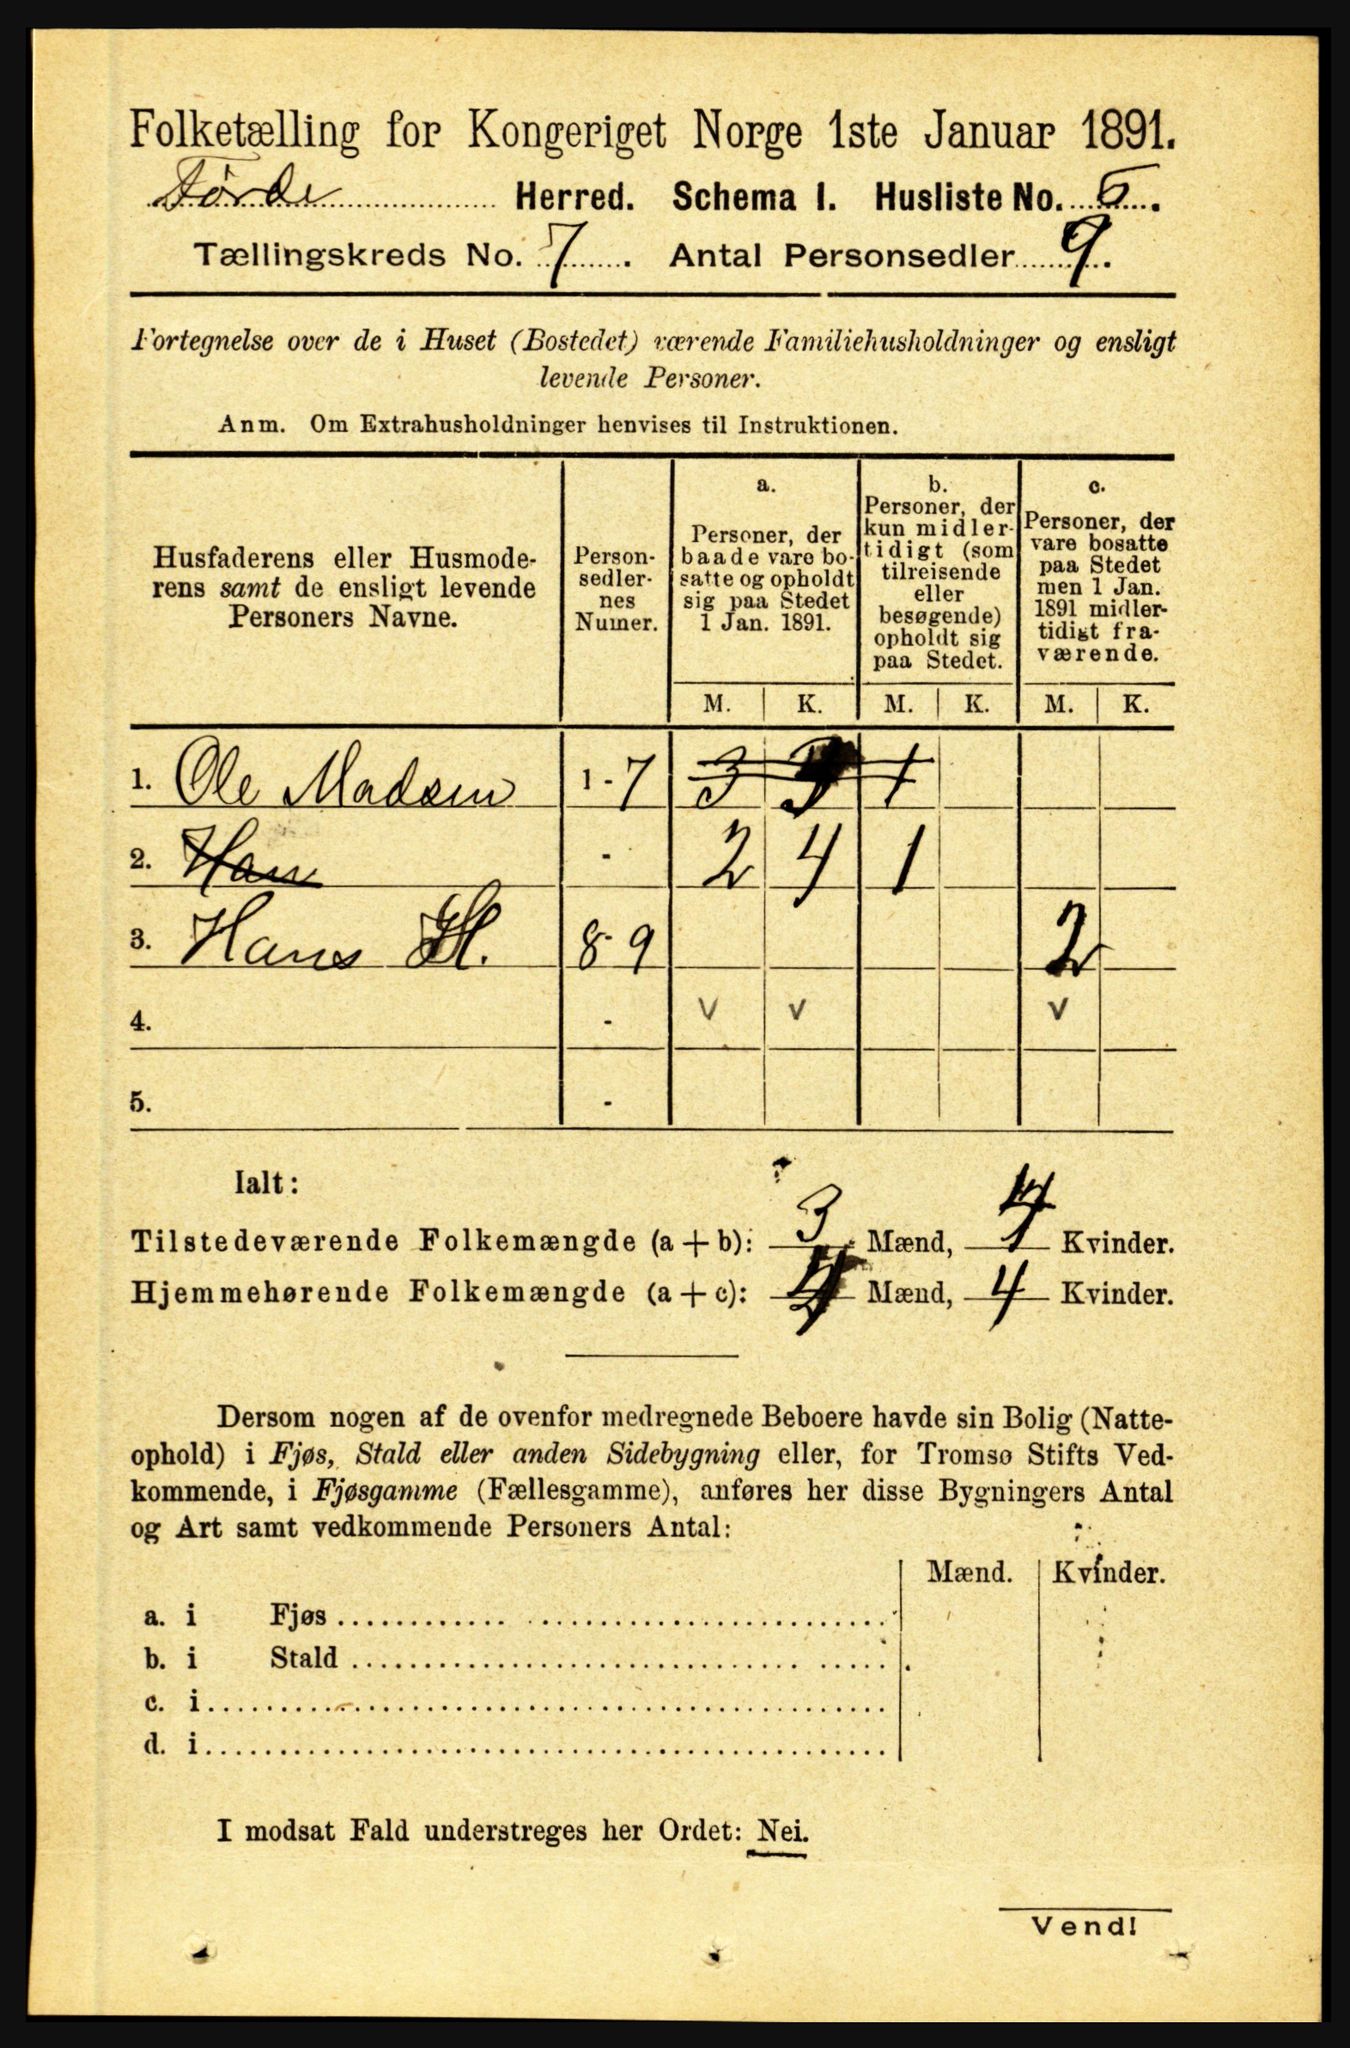 Folketælling for Kongeriget Norge 1ste Januar 1891.
Førde Herred. Schema I. Husliste No. 5.
Tællingskreds No. 7. Antal Personsedler 9.
Fortegnelse over de i Huset (Bostedet) værende Familiehusholdninger og ensligt
levende Personer.
Anm. Om Extrahusholdninger henvises til Instruktionen.
Husfaderens eller Husmode-
rens samt de ensligt levende
Personers Navne.
Person-
sedler-
nes
Numer.
a.
Personer, der
baade vare bo-
satte og opholdt
sig paa Stedet
1 Jan. 1891.
b.
Personer, der
kun midler-
tidigt (som
tilreisende
eller
besøgende)
opholdt sig
paa Stedet.
c.
Personer, der
vare bosatte
paa Stedet
men 1 Jan.
1891 midler-
tidigt fra-
værende.
M. K. M. K. M. K.
1. Ole Madsen 1-7 3 3 1
2. Han - 2 4 1
3. Hans H. 8-9 2
4. - v v v
5. -
Ialt:
Tilstedeværende Folkemængde (a + b): 3 Mænd, 4 Kvinder.
Hjemmehørende Folkemængde (a + c): 4 Mænd, 4 Kvinder.
Dersom nogen af de ovenfor medregnede Beboere havde sin Bolig (Natte-
ophold) i Fjøs, Stald eller anden Sidebygning eller, for Tromsø Stifts Ved-
kommende, i Fjøsgamme (Fællesgamme), anføres her disse Bygningers Antal
og Art samt vedkommende Personers Antal:
Mænd. Kvinder.
a. i Fjøs
b. i Stald
c. i
d. i
I modsat Fald understreges her Ordet: Nei.
Vend!